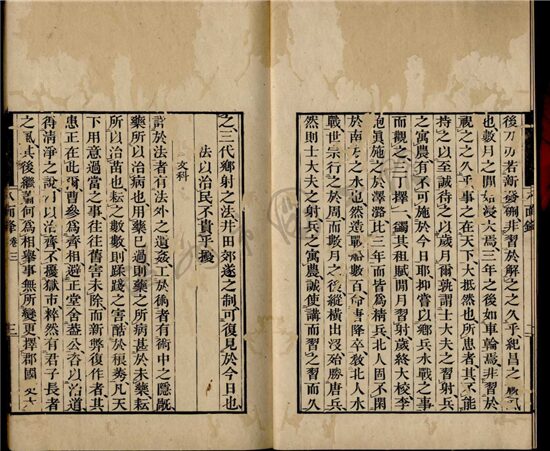 後刀刃若新發硎非習於解之之久乎紀昌之
也數月之間如浸大焉三年之後如車輪焉非習於
視之之久乎事之在天下大抵然也所患者其不能
持之以至誠待之以歲月爾孰謂士大夫之習射兵
之寓農有不可施於今日耶抑嘗以鄉兵水戰之事
而觀之三丁擇一蠲其租賦閒月習射歲終大校李
抱眞施之於澤潞比三年而皆爲精兵北人固不閑
於南方之水也然造數百命唐降卒敎北人水
戰世宗行之於周而數月之後縱橫出沒殆勝唐兵
然則士大夫之射兵之寓農誠使講而習習而久
之三代鄉射之法井田郊遂之制可復見於今日也
法以治民不貴乎擾
文科
詐於法者有法外之遁姦工於術者有術中之隱戕
藥所以治病也用藥已過則藥之所病甚於未藥耘
所以治苗也耘之數數則蹂踐之害酷於稂莠凡天
下用意過當之事往往舊害未除而新弊復作者其
患正在此爾曹參爲齊相避正堂舍蓋公咨以治道
得淸淨之說以治齊不擾獄市粹然有君子長者
之風其後繼蕭何爲相舉事無所變更擇郡國
八面鋒 卷三 三